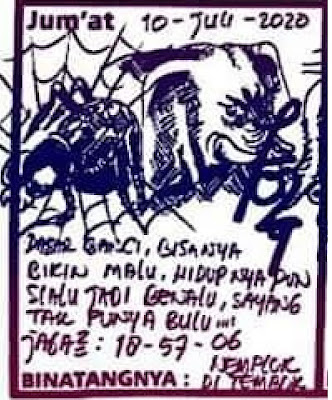 Jum'at 10-JULI-2020
DASAR BANCI, BISANYA
BIKIN MALU, HIDUPNYA PUN
SLALU JADI BENALU, SAYANG
TAK PUNYA BULU....
JAGA2 : 18-57-06
NEMPLOK
BINATANGNYA : DI TEMBOK